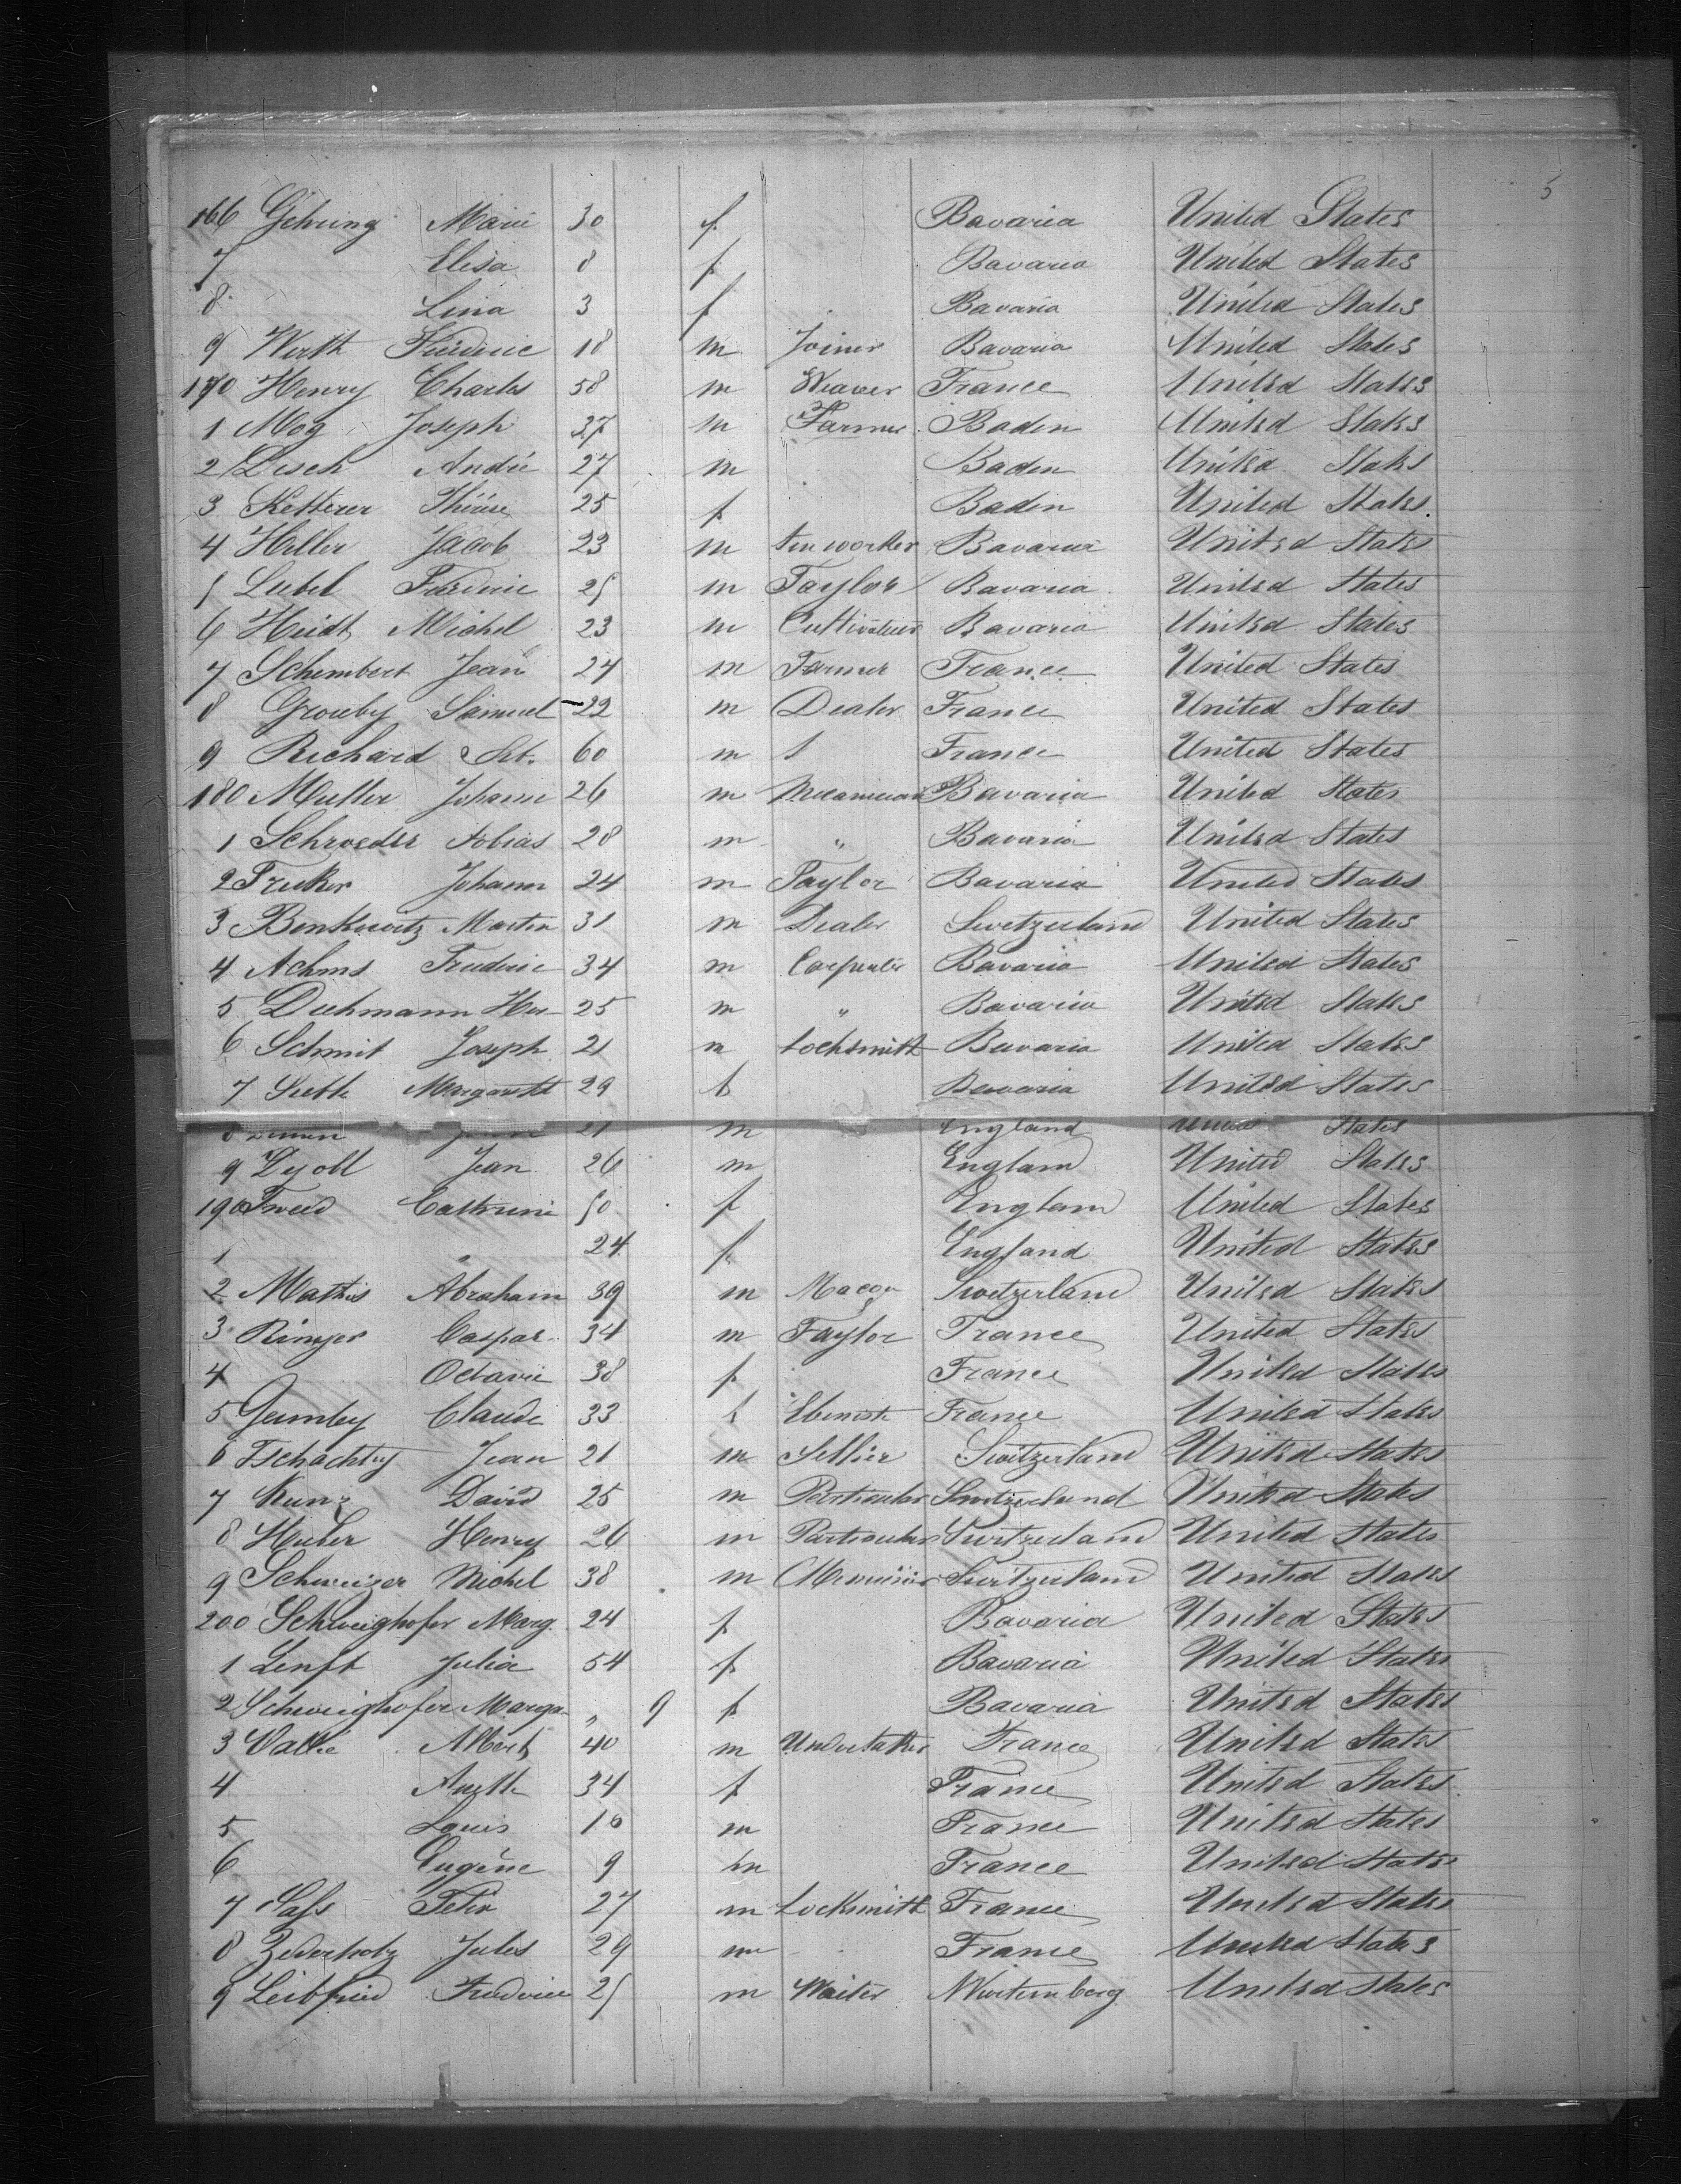 5
166 Gehring Marie 30 f Bavaria United States
7 Elisa 8 f Bavaria United States
8 Lina 3 f Bavaria United States
9 Werth Fréderic 18 m Joiner Bavaria United States
170 Henry Charles 58 m Weaver France United States
1 Mog Joseph 37 m Farmer Baden United States
2 Disch André 27 m Baden United States
3 Ketterer Thérèse 25 f Baden United States
4 Heller Jacob 23 m tin worker Bavaria United States
5 Luebel Fréderic 25 m Taylor Bavaria United States
6 Heidt Michel 23 m Cultivateur Bavaria United States
7 Schembert Jean 24 m Farmer France United States
8 Grouby Samuel 22 m Dealer France United States
9 Richard 60 m France United States
180 Muller Johann 26 m Mecanician Bavaria United States
1 Schroeder Tobias 28 m " Bavaria United States
2 Johann 24 m Taylor Bavaria United States
3 Benkowitz Martin 31 m Dealer Switzerland United States
4 Achms Frederic 34 m Carpenter Bavaria United States
5 Diehmann 25 m " Bavaria United States
6 Schmit Joseph 21 m Locksmith Bavaria United States
7 Margareth 29 f Bavaria United States
8 21 m England United States
9 Jean 26 m England United States
190 Tweed Cathrine 50 f England United States
1 " 24 f England United States
2 Mathis Abraham 39 m Maçon Switzerland United States
3 Rinyer Caspar 34 m Taylor France United States
4 Octavie 38 f France United States
5 Gumley Claude 33 f Ebeniste France United States
6 Tschachtly Jean 21 m Sellier Switzerland United States
7 Kunz David 25 m Particular Switzerland United States
8 Huber Henry 26 m Particular Switzerland United States
9 Schweizer Michel 38 m Menuisier Switzerland United States
200 Schweighofer Marg. 24 f Bavaria United States
1 Senft Julia 54 f Bavaria United States
2 Schweighofer Marga. " 9 f Bavaria United States
3 Vallie Albert 40 m Undertaker France United States
4 Anette 34 f France United States
5 Louis 10 m France United States
6 Eugène 9 m France United States
7 Sass Peter 27 m Locksmith France United States
8 Zederholz Jules 29 m France United States
9 Leibfried Frederic 25 m Waiter Wurtemberg United States